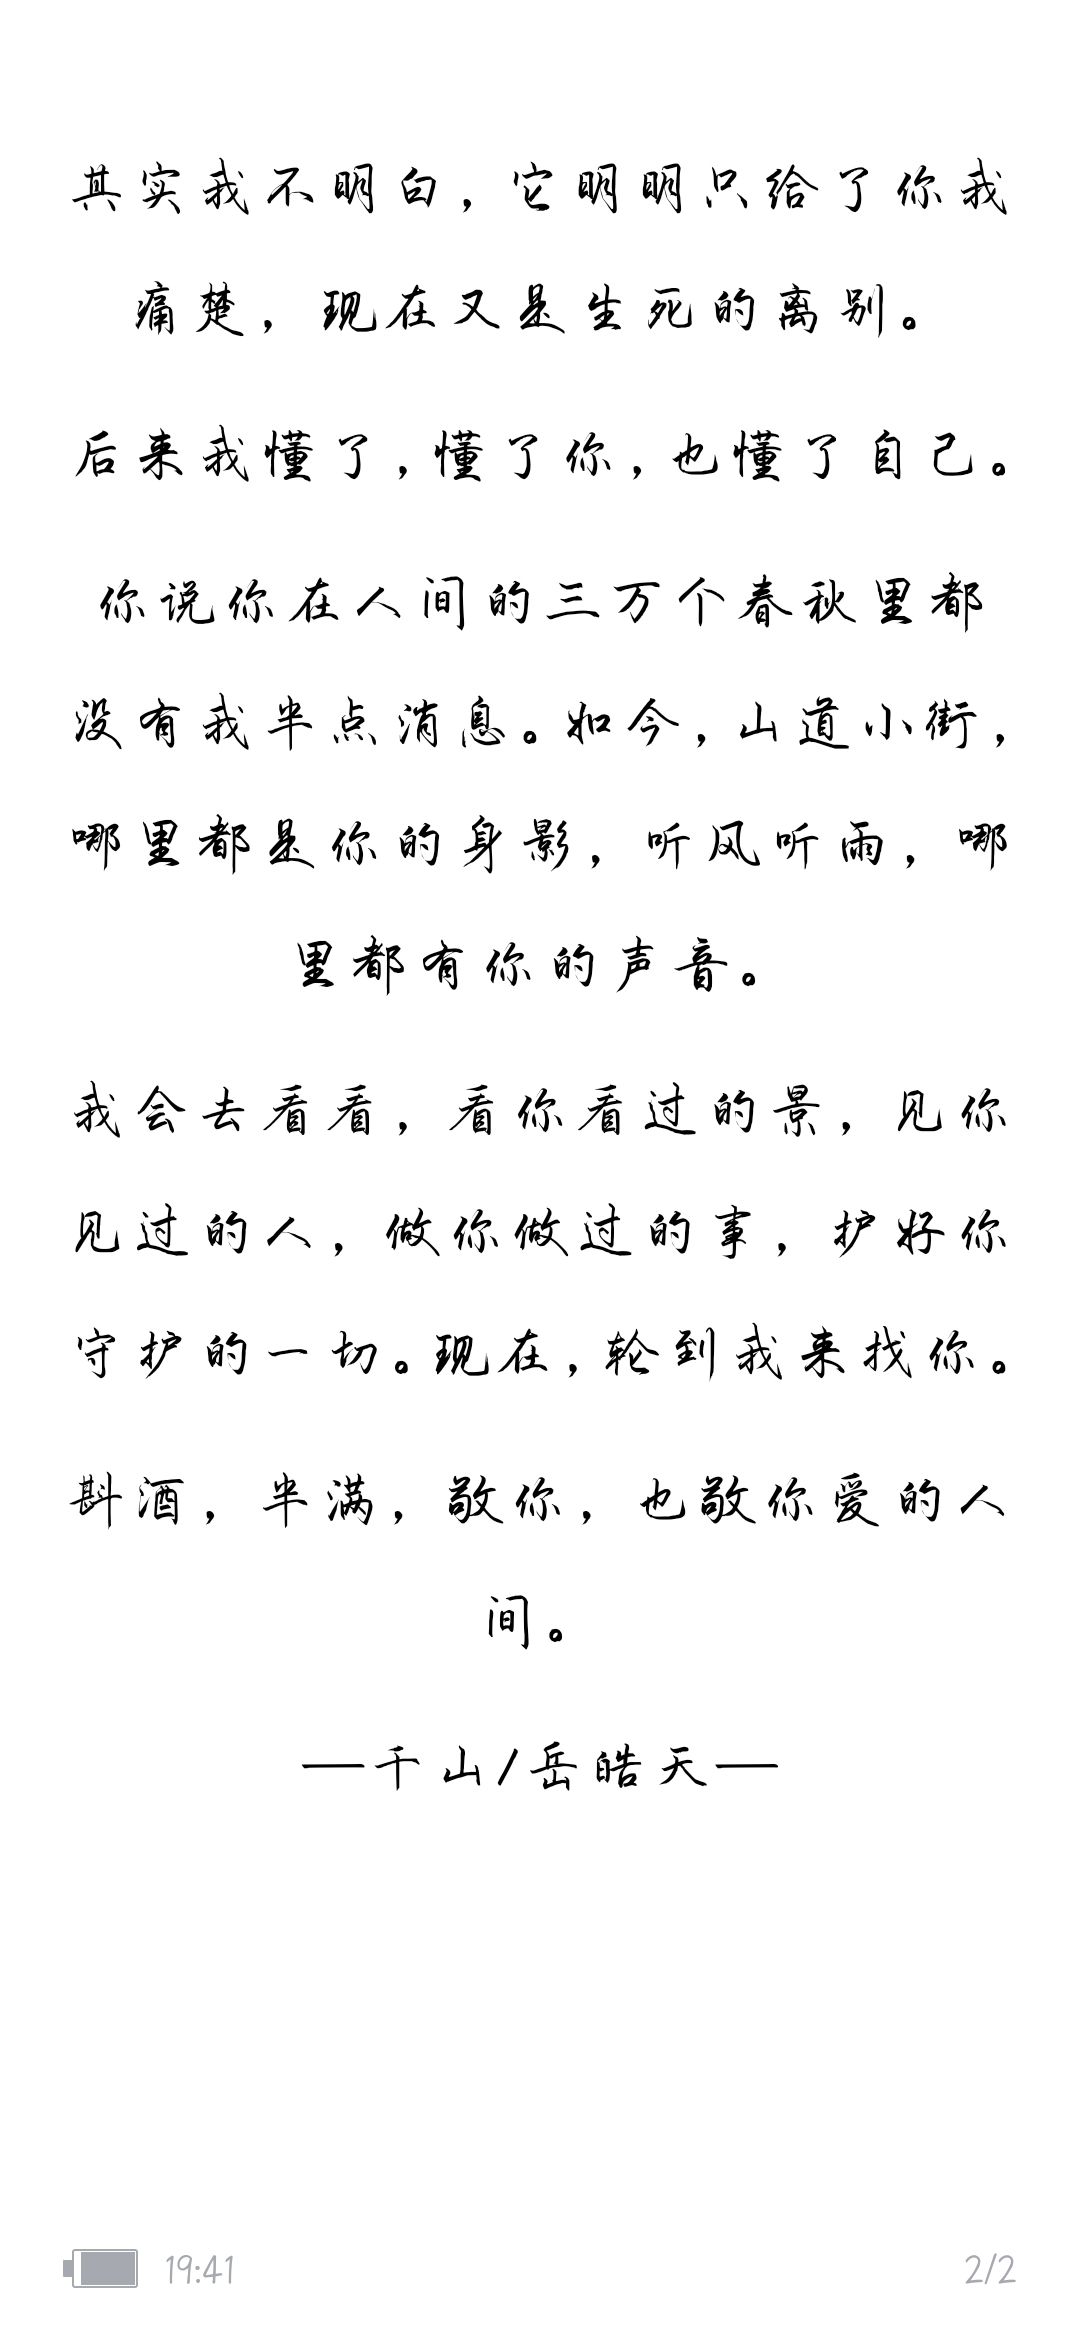 其实我不明白，它明明只给了你我
痛楚，现在又是生死的离别。
后来我懂了，懂了你，也懂了自己。
你说你在人间的三万个春秋里都
没有我半点消息。如今，山道小街，
哪里都是你的身影，听风听雨，哪
里都有你的声音。
我会去看看，看你看过的景，见你
见过的人，做你做过的事，护好你
守护的一切。现在，轮到我来找你。
斟酒，半满，敬你，也敬你爱的人
间。
—千山/岳皓天—
19:41
2/2